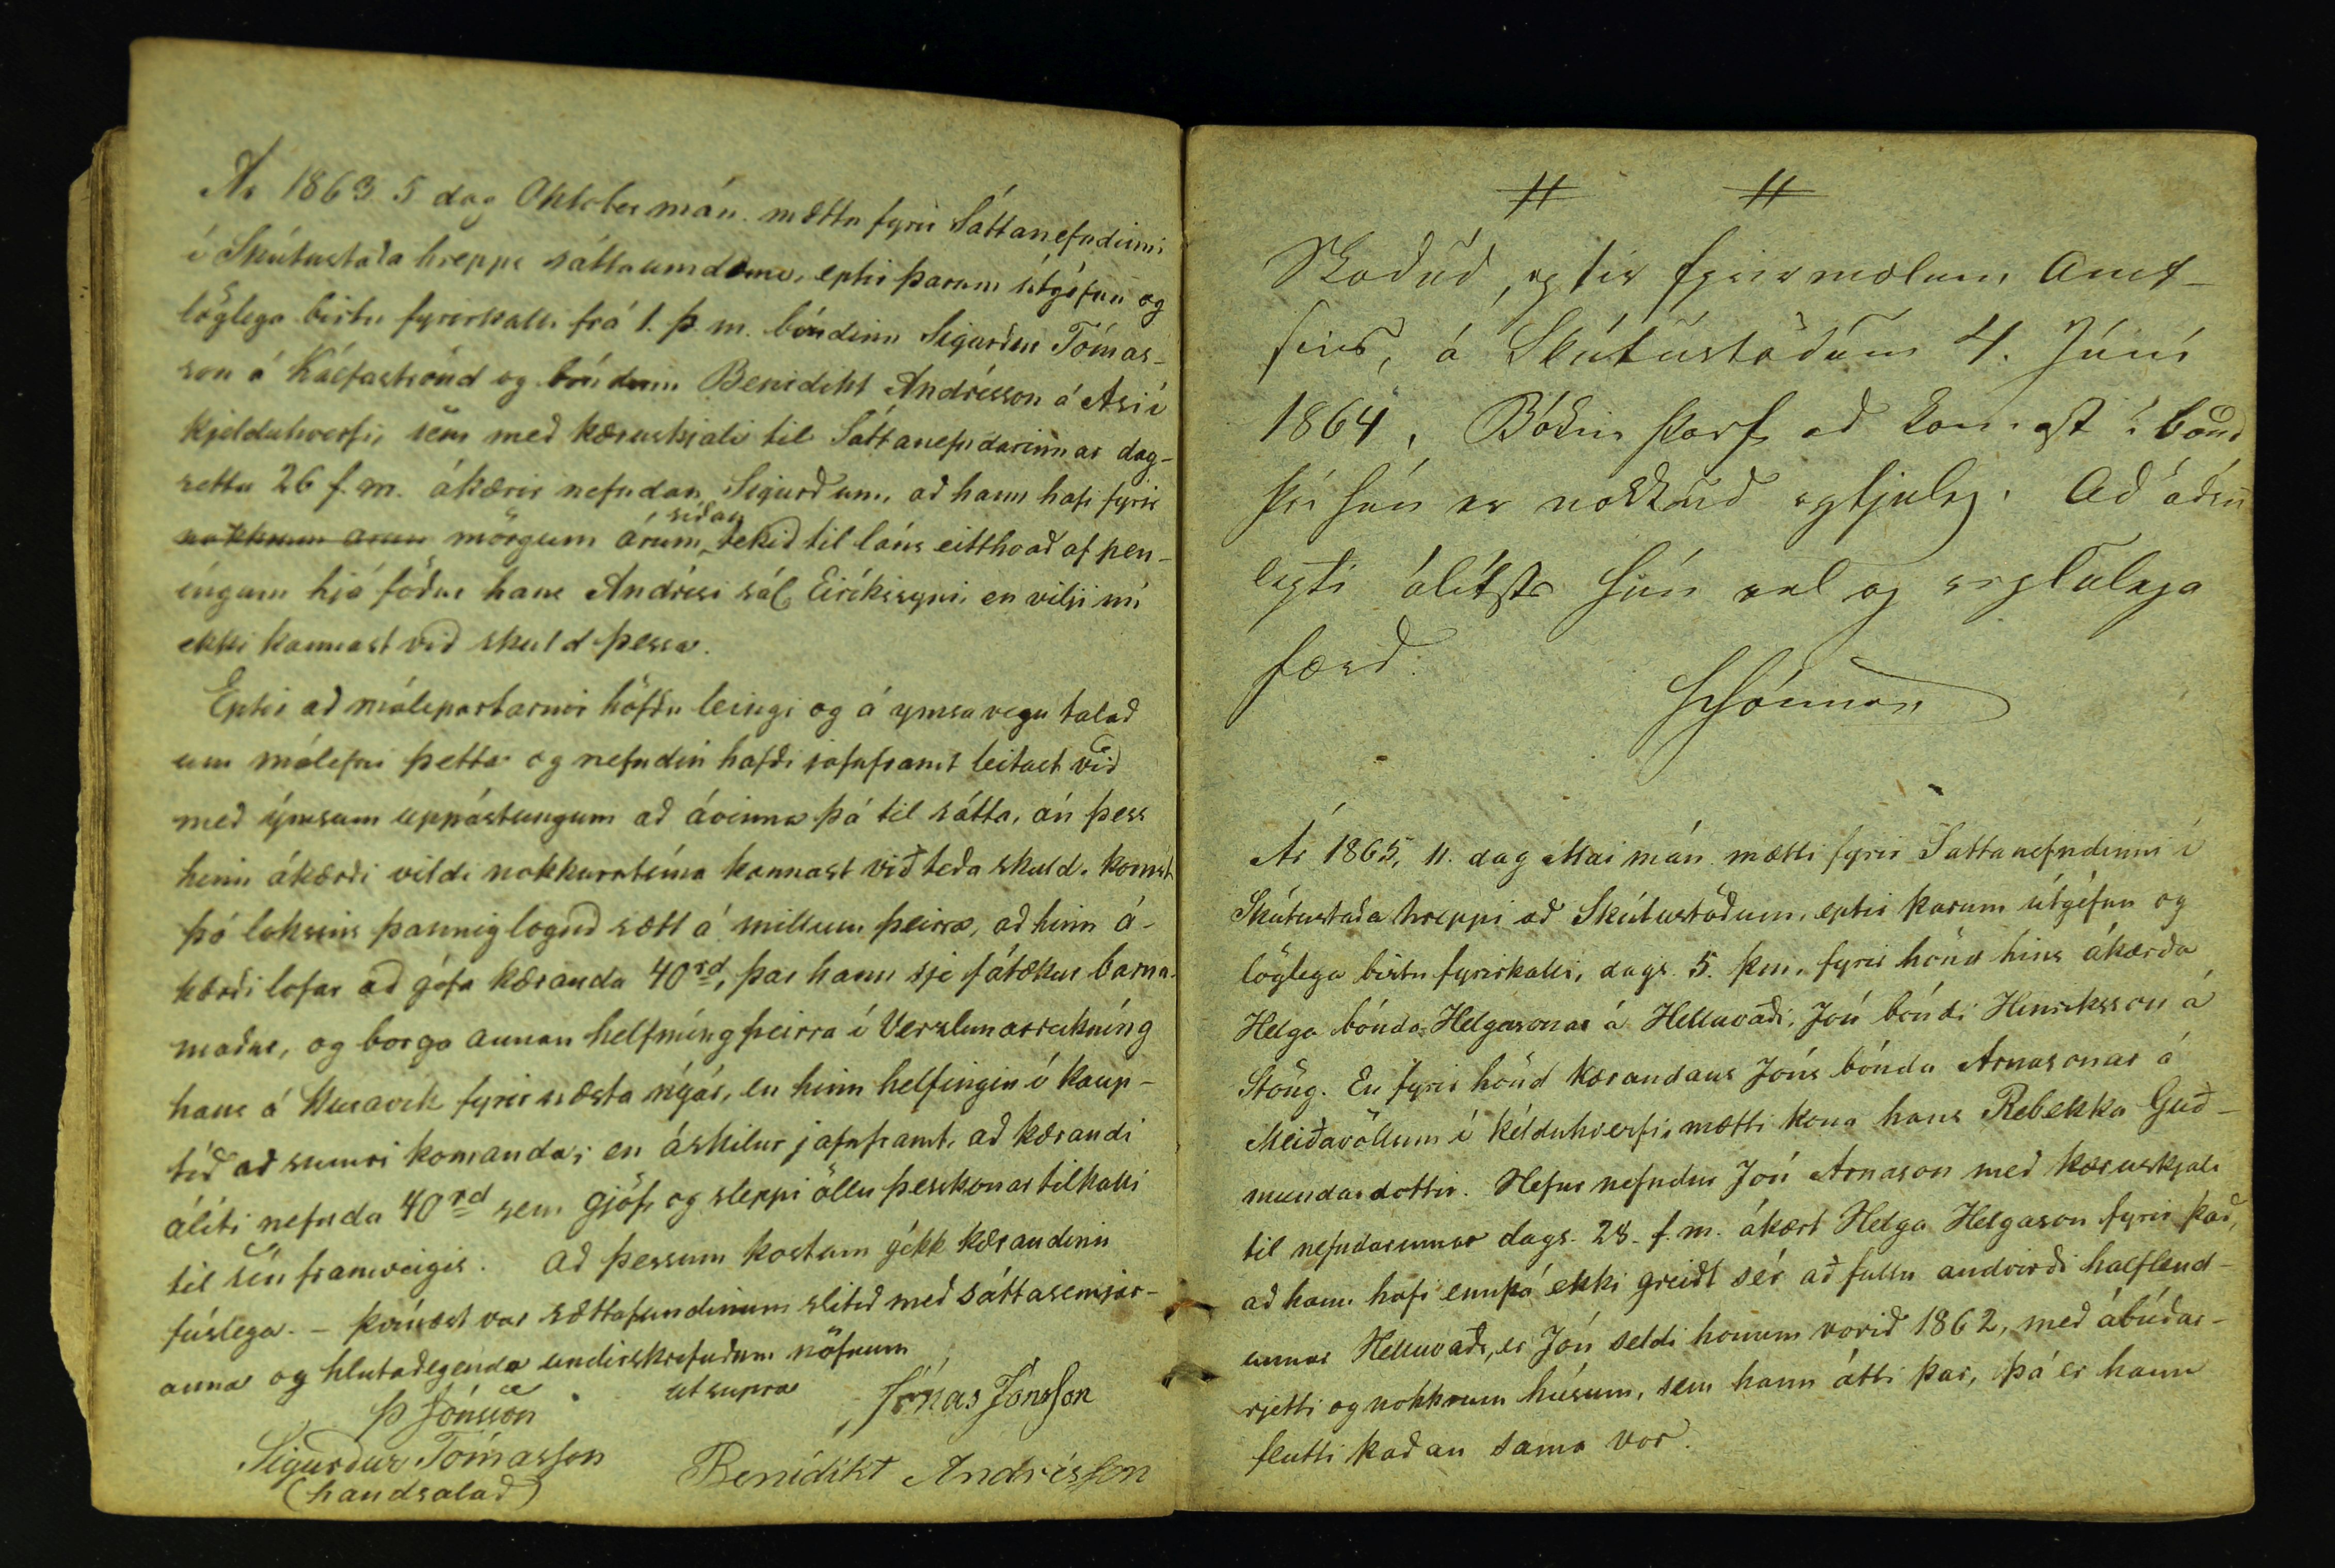 Ár 1863 5 dag Oktober mán. mættu fyrir Sáttanefndinni
í Skútustaða hrepps sáttaumdæme, eptir þarum útgéfnu og
löglega birtu fyrirkalli frá 1. þ. m. bóndinn Sigurður Tómas-
son á Kálfaströnd og bóndinn Benidikt Andrésson á Ási í
Kjelduhverfi, sem með kæruskjali til Sáttanefndarinnar dag-
settu 26 f. m. ákærir nefndan Sigurð um, að hann hafi fyrir
nokkrum árum mörgum árum síðan tekið til láns eitthvað af pen-
íngum hjá föður hans Andrési sál Eiríkssyni en vilji nú
ekki kannast við skuld þessa.
Eptir að málspartarnir höfðu leingi og á ymsa vegu talað
um málefni þetta og nefndin hafði jafnframt leitast við
með ýmsum uppástungum að ávinna þá til sátta, án þess
hinn ákærði vildi nokkurntíma kannast við téða skuld, komst
þó loksins þannig löguð sætt á millum þeirra, að hinn á-
kærði lofar að géfa kæranda 40 rd, þar hann sje fátækur barna-
maður, og borga annan helfníng þeirra í Verslunarreikníng
hans á Husavík fyrir næsta nýár, en hinn helfíngin í kaup-
tíð að sumri komanda; en áskilur jafnframt, að kærandi
áliti nefnda 40 rd sem gjöf, og sleppi öllu þesskonar tilkalli
til sín framveigis. Að þessum kostum gékk kærandinn
fúslega. - Þvínæst var sættafundinum slitið með sáttasemjar-
anna og hlutaðegenda undirskrifuðum nöfnum
ut supra
Þ Jónsson
Jónas Jónsson
Sigurður Tómasson
(handsalað)
Benidikt Andrésson
Skoðuð, eptir fyrirmælum Amt-
sins, á Skútustöðum 4. Júní
1864. Bókin þarf að komast í band
því hún er nokkuð
álítst hún vel og reglulega
færð.
Ár 1865, 11. dag Mai mán. mætti fyrir Sattanefndinni í
Skútustaða hreppi að Skútustöðum, eptir þarum útgéfnu og
löglega birtu fyrirkalli, dags. 5. þ.m. fyrir hönd hins ákærða
Helga bónda Helgasonar á Helluvaði, Jón bóndi Hinriksson á
Stöng. En fyrir hönd kærandans Jóns bónda Arnasonar á
Meiðavöllum í kélduhverfi, mætti kona hans Rebekka Guð-
mundardottir. Hefur nefndur Jón Arnason með kæruskjali
til nefndarinnar dags. 28. f. m. ákært Helga Helgason fyrir það,
að hann hafi ennþá ekki greiðt sér að fullu andvirði halflend-
unnar Helluvaðs, er Jón seldi honum vorið 1862, með ábúðar-
rjetti og nokkrum húsum, sem hann átti þar, þá er hann
flutti þaðan sama vor.